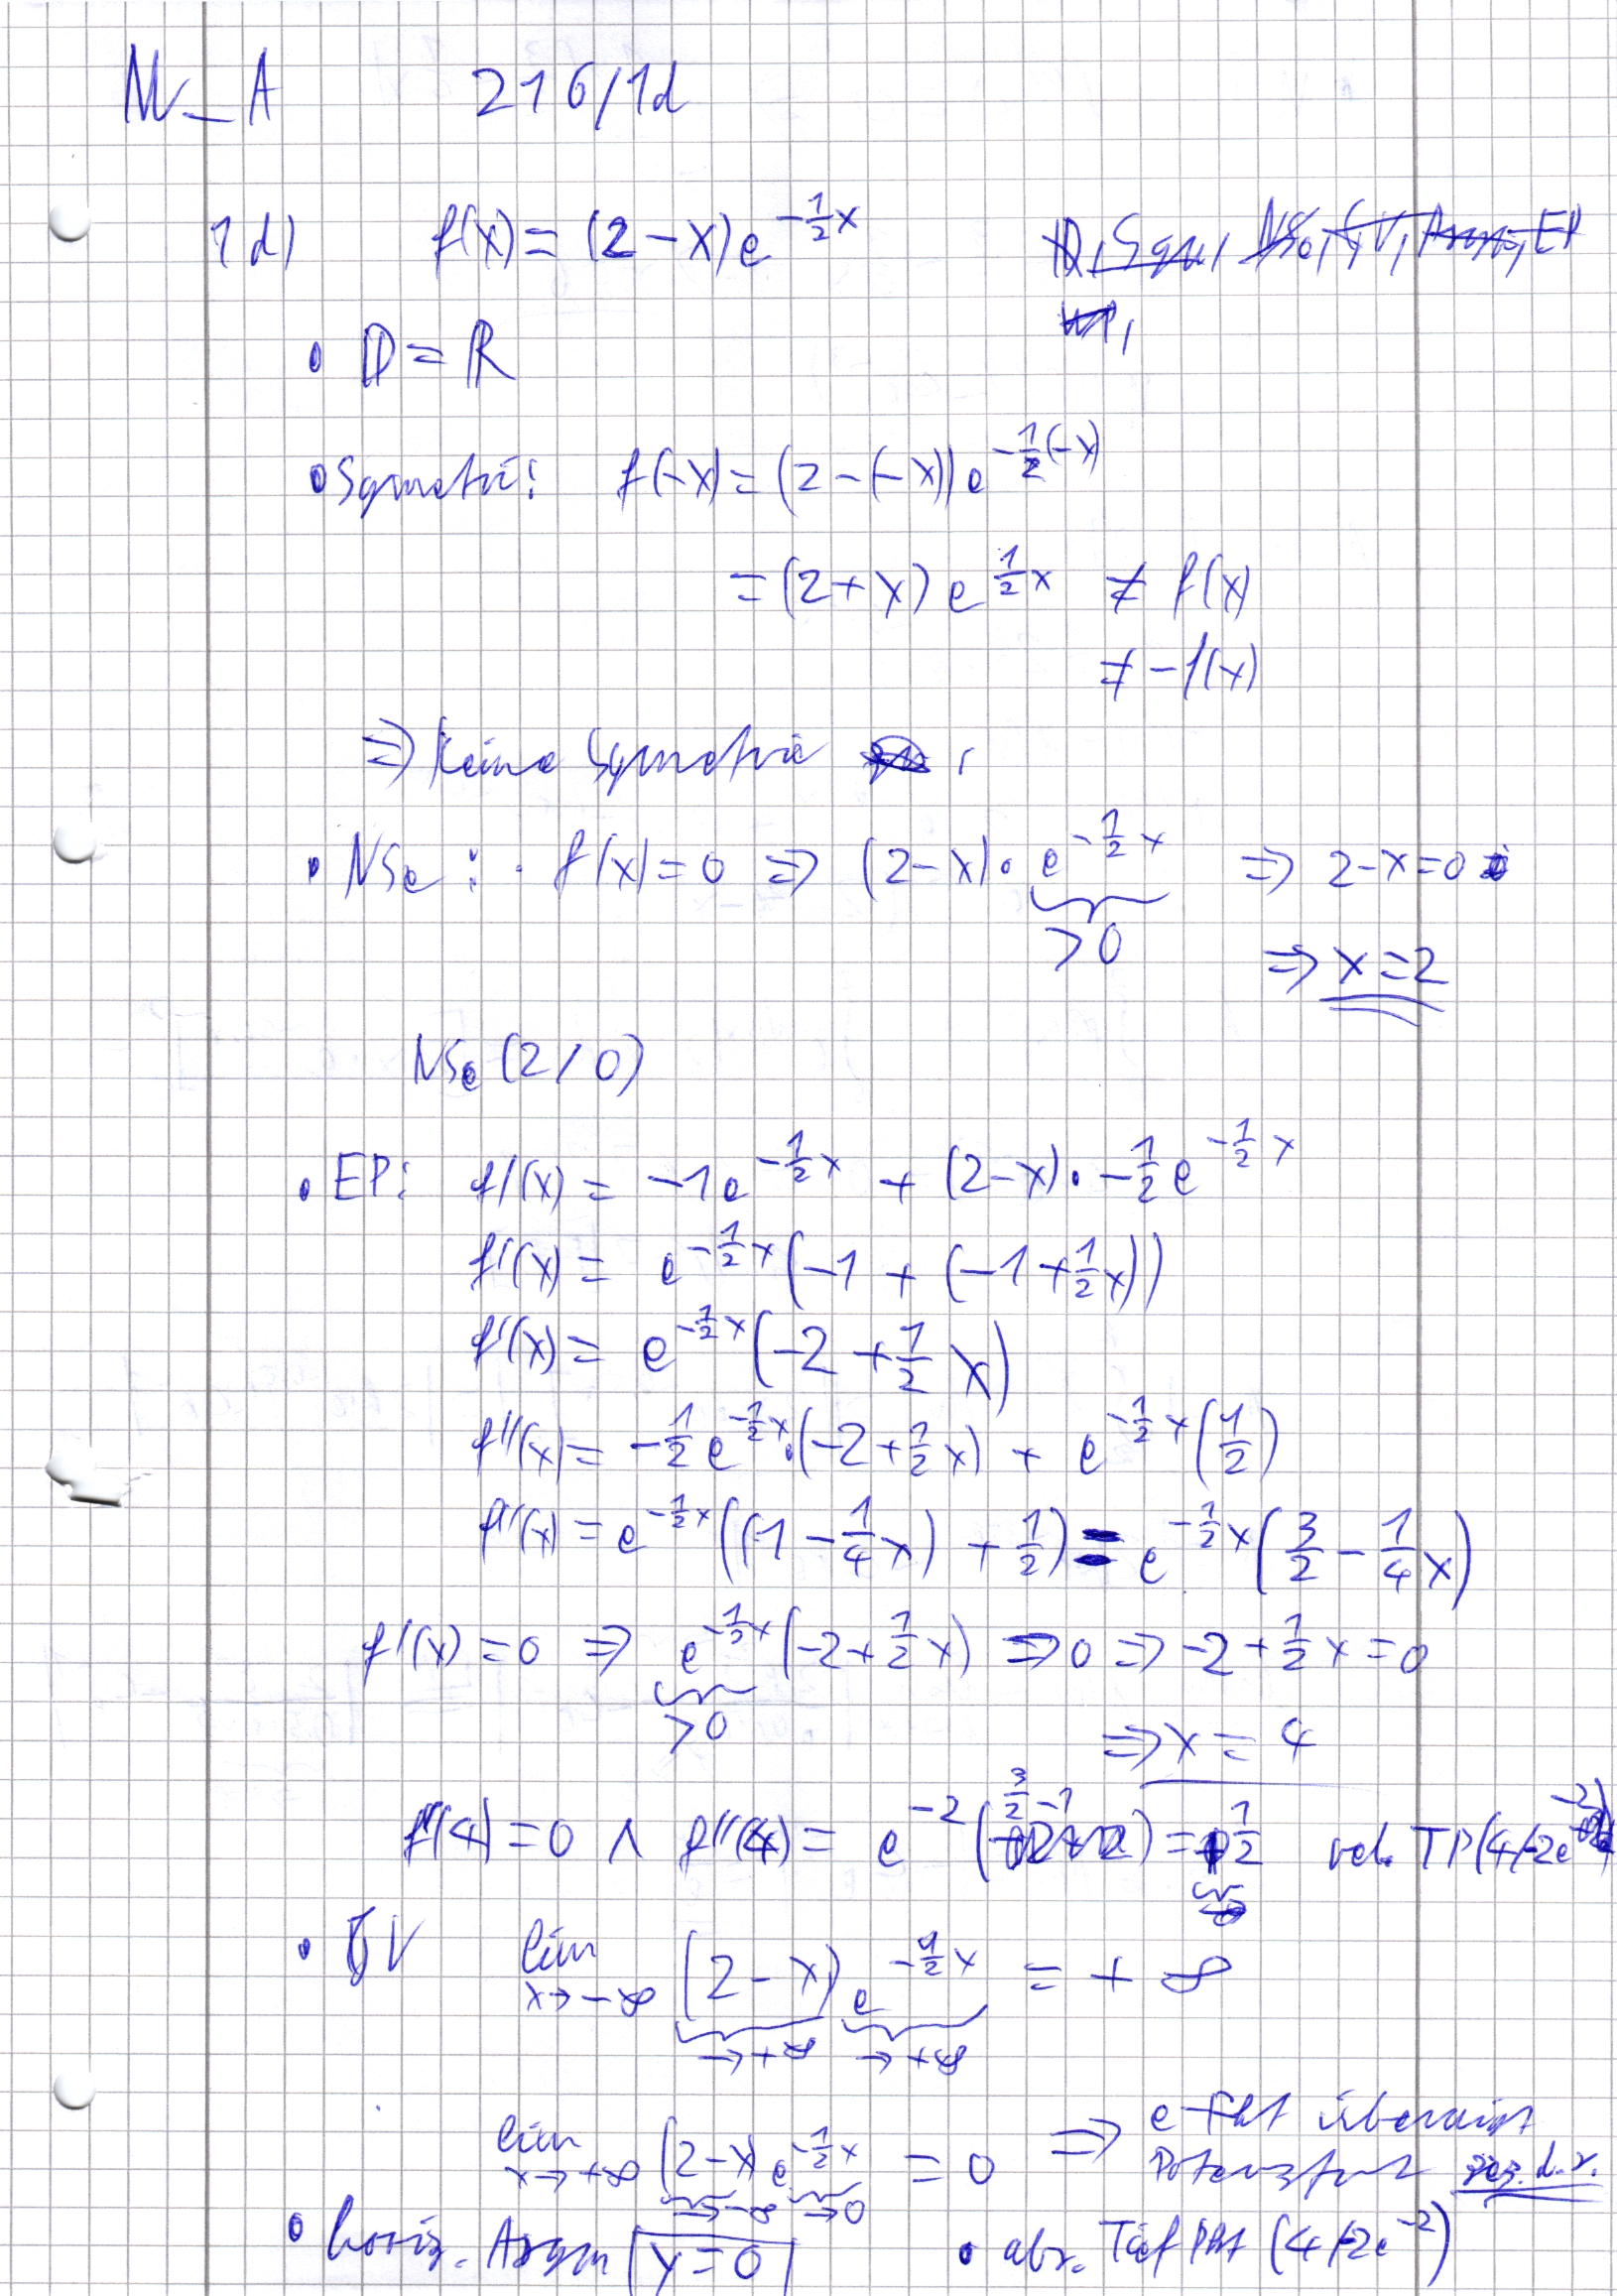 M_A 216/1d
1d) f(x) = (2-x)e^{-\frac{1}{2}x} D, Sym, NSe, GV, Asym, EP
WP,
• D = R
• Symetri: f(-x) = (2-(-x))e^{-\frac{1}{2}(-x)}
= (2+x)e^{\frac{1}{2}x} ≠ f(x)
≠ -f(x)
⇒ Keine Symetrie
• NSe: f(x) = 0 ⇒ (2-x)·e^{-\frac{1}{2}x} ⇒ 2-x=0
>0 ⇒ x=2
NSe (2/0)
• EP: f'(x) = -1e^{-\frac{1}{2}x} + (2-x)·-\frac{1}{2}e^{-\frac{1}{2}x}
f'(x) = e^{-\frac{1}{2}x}(-1 + (-1+\frac{1}{2}x))
f'(x) = e^{-\frac{1}{2}x}(-2+\frac{1}{2}x)
f''(x) = -\frac{1}{2}e^{-\frac{1}{2}x}·(-2+\frac{1}{2}x) + e^{-\frac{1}{2}x}(\frac{1}{2})
f''(x) = e^{-\frac{1}{2}x}((1-\frac{1}{4}x)+\frac{1}{2}) = e^{-\frac{1}{2}x}(\frac{3}{2}-\frac{1}{4}x)
f'(x) = 0 ⇒ e^{-\frac{1}{2}x}(-2+\frac{1}{2}x) ⇒ 0 ⇒ -2+\frac{1}{2}x=0
>0
⇒ x = 4
f'(4) = 0 ∧ f''(4) = e^{-2}(\frac{3}{2}-1) = \frac{1}{2} rel. TP(4/-2e^{-2})
• GV lim x→-∞ (2-x)e^{-\frac{1}{2}x} = +∞
→+∞ →+∞
lim x→+∞ (2-x)e^{-\frac{1}{2}x} = 0 ⇒ e-Fkt überwiegt
→-∞ →0 Potenzfunkt
• horiz. Asym y=0 • abs. Tief Pkt (4/-2e^{-2})